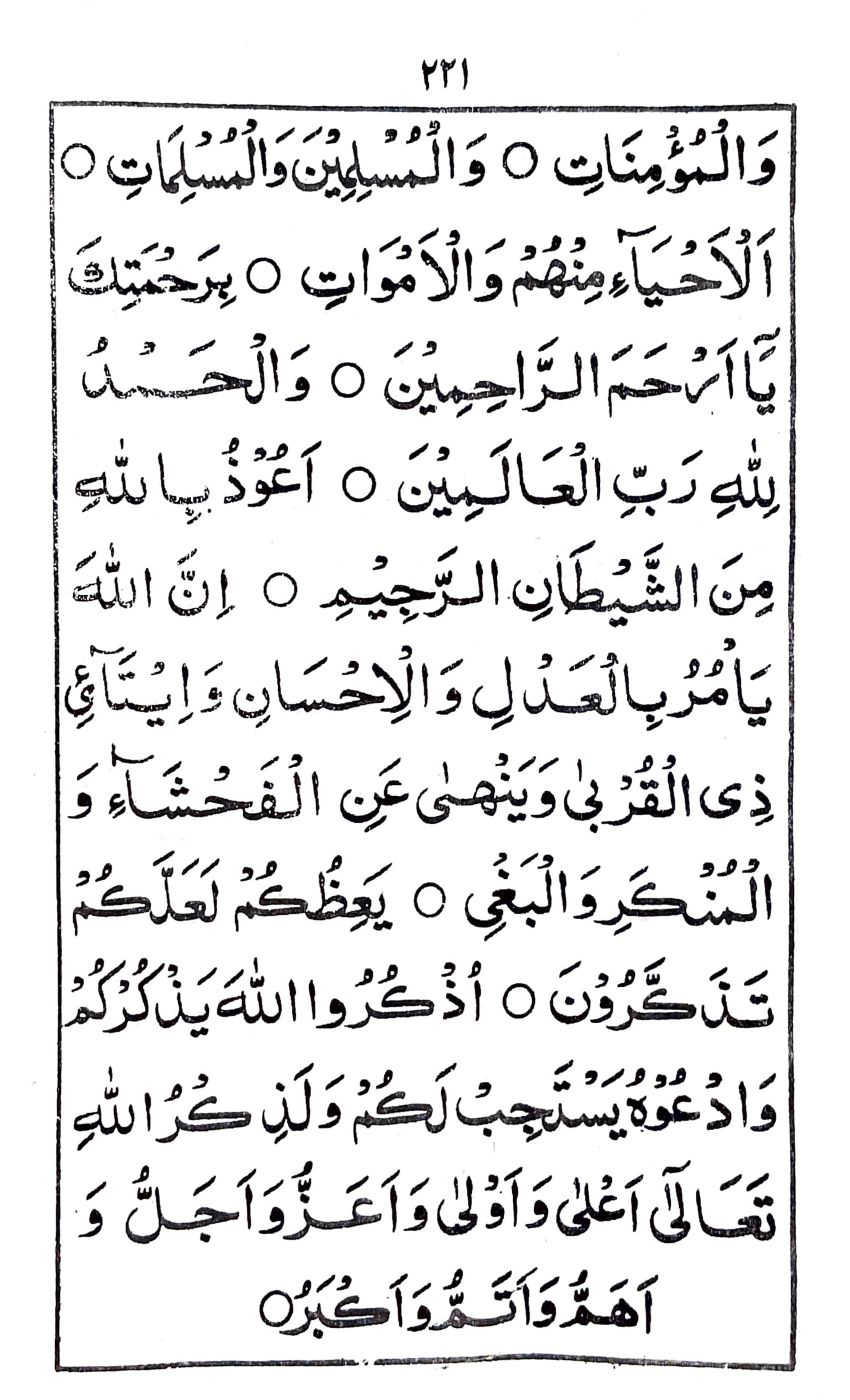 ٢٣١
وَالْمُؤْمِنَاتِ ○ وَالْمُسْلِمِيْنَ وَالْمُسْلِمَاتِ ○
اَلْاَحْيَآءِ مِنْهُمْ وَالْاَمْوَاتِ ○ بِرَحْمَتِكَ
يَآ اَرْحَمَ الرَّاحِمِيْنَ ○ وَالْحَمْدُ
لِلّٰهِ رَبِّ الْعَالَمِيْنَ ○ اَعُوْذُ بِاللّٰهِ
مِنَ الشَّيْطَانِ الرَّجِيْمِ ○ اِنَّ اللّٰهَ
يَاْمُرُ بِالْعَدْلِ وَالْاِحْسَانِ وَاِيْتَآئِ
ذِى الْقُرْبٰى وَيَنْهٰى عَنِ الْفَحْشَآءِ وَ
الْمُنْكَرِ وَالْبَغْىِ ○ يَعِظُكُمْ لَعَلَّكُمْ
تَذَكَّرُوْنَ ○ اُذْكُرُوا اللّٰهَ يَذْكُرْكُمْ
وَادْعُوْهُ يَسْتَجِبْ لَكُمْ وَلَذِكْرُ اللّٰهِ
تَعَالٰٓى اَعْلٰى وَاَوْلٰى وَاَعَزُّ وَاَجَلُّ وَ
اَهَمُّ وَاَتَمُّ وَاَكْبَرُ ○